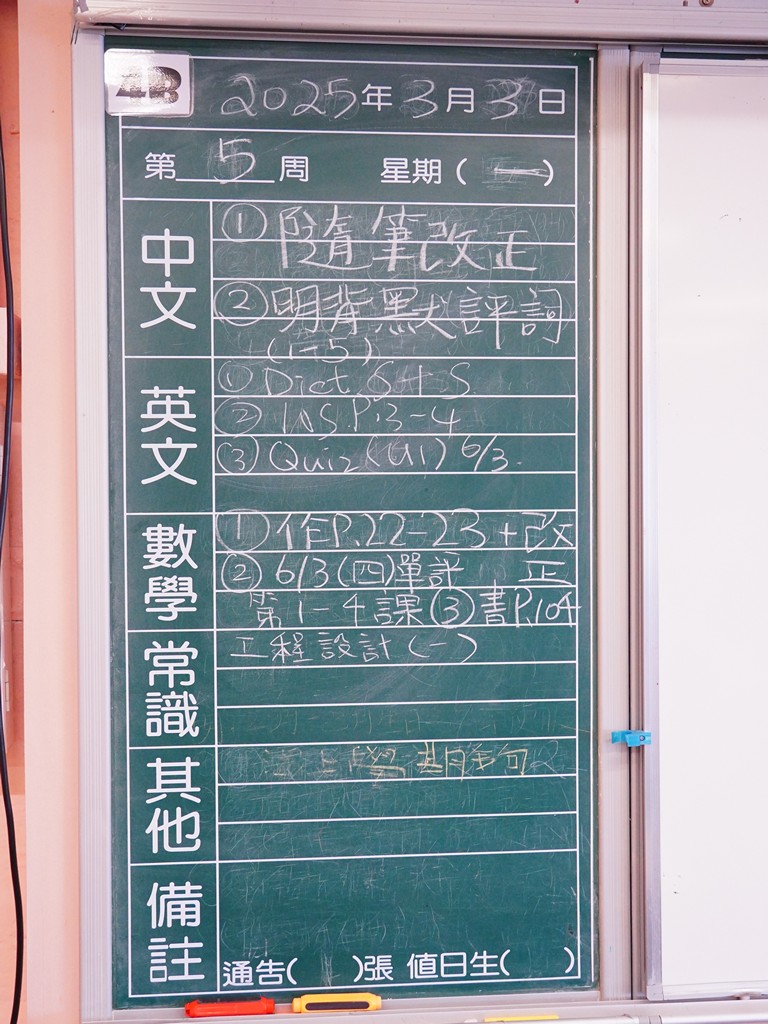 4B
2025年3月3日
第5周 星期(一)
中文
① 隨筆改正
② 明背默(評詞
(1-5)
英文
① Dict. S + S
② P.3-4
③ Quiz (U1) 6/3.
數學
① 作P.22-23+改
② 6/3(四)單評 正
第1-4課 ③書P.104
常識
工程設計(一)
其他
上學期
備註
通告( )張 值日生( )